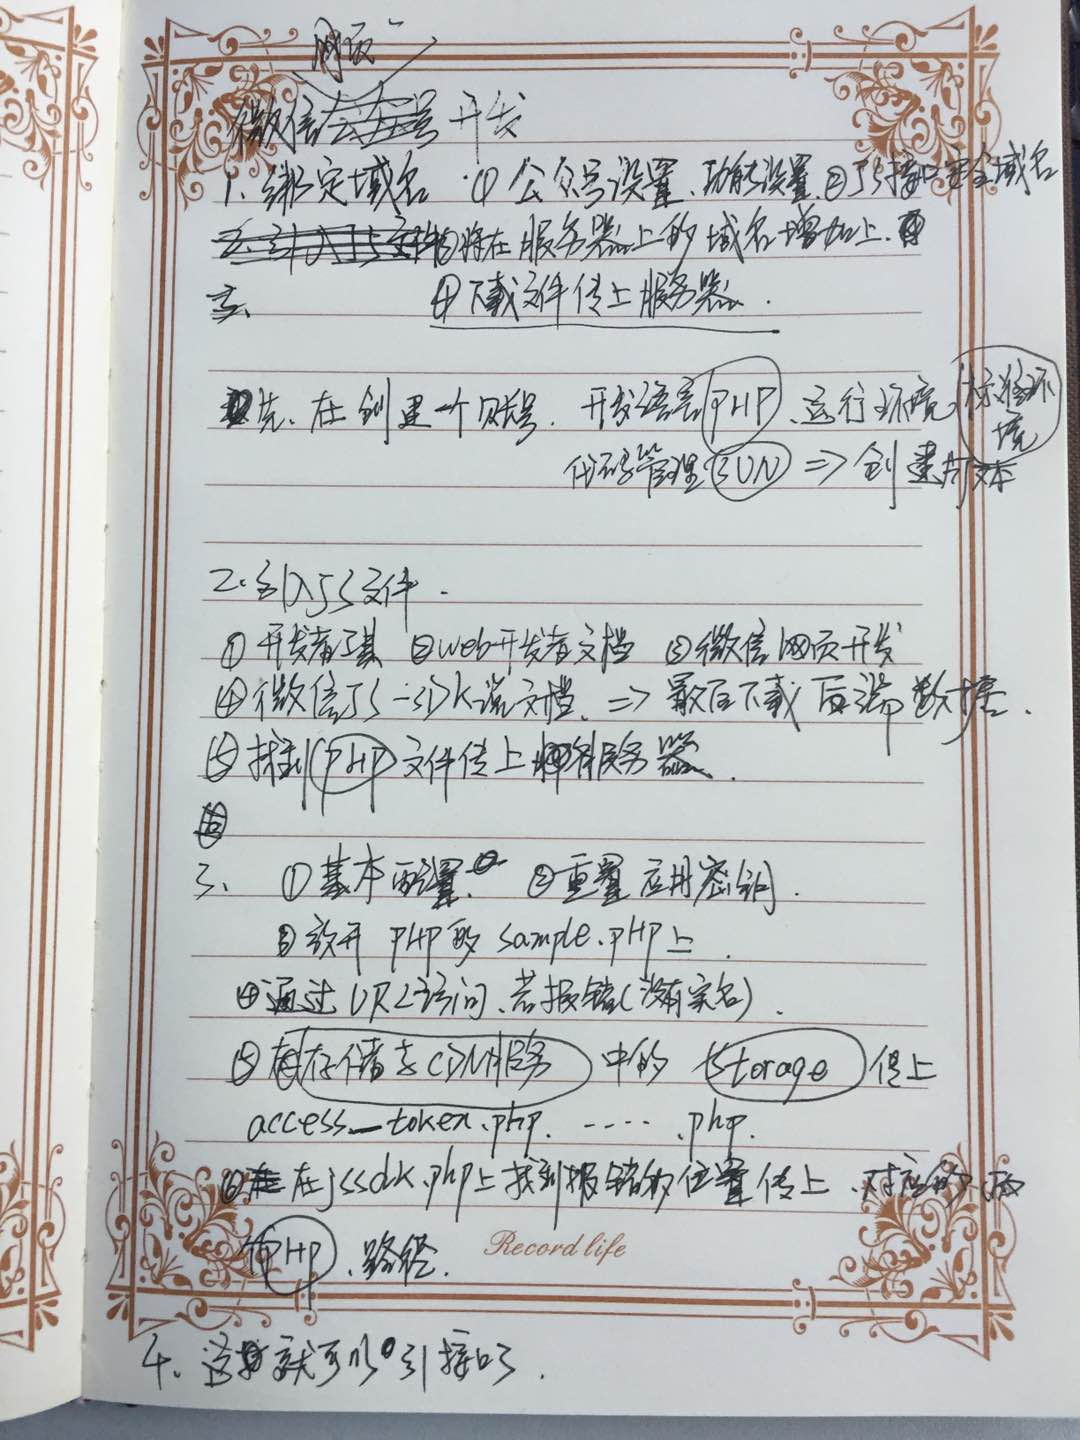 网页
微信公众号开发
1、绑定域名 ① 公众号设置、功能设置 ② JS接口安全域名
2、引入JS文件 ③ 将在服务器上的域名增加上、
④ 下载文件传上服务器.
先、在创建一个账号. 开发语言 PHP、运行环境 标准环
境
代码管理 SVN => 创建版本
2.引入JS文件.
① 开发者工具 ② web开发者文档 ③ 微信网页开发
④ 微信JS-SDK说文档. => 最后下载后端数据.
⑤ 找到 PHP 文件传上 服务器.
3、 ① 基本配置. ② 重置应用密钥.
③ 放开 PHP的 sample.PHP上
④ 通过 URL访问、若报错(没有实名).
⑤ 在存储与CDN服务 中的 Storage 传上
access_token.php. ..... .php.
⑥ 在jssdk.php上找到报错的位置传上、对应的
PHP、路径.
Record life
4、这就可以引接口了.